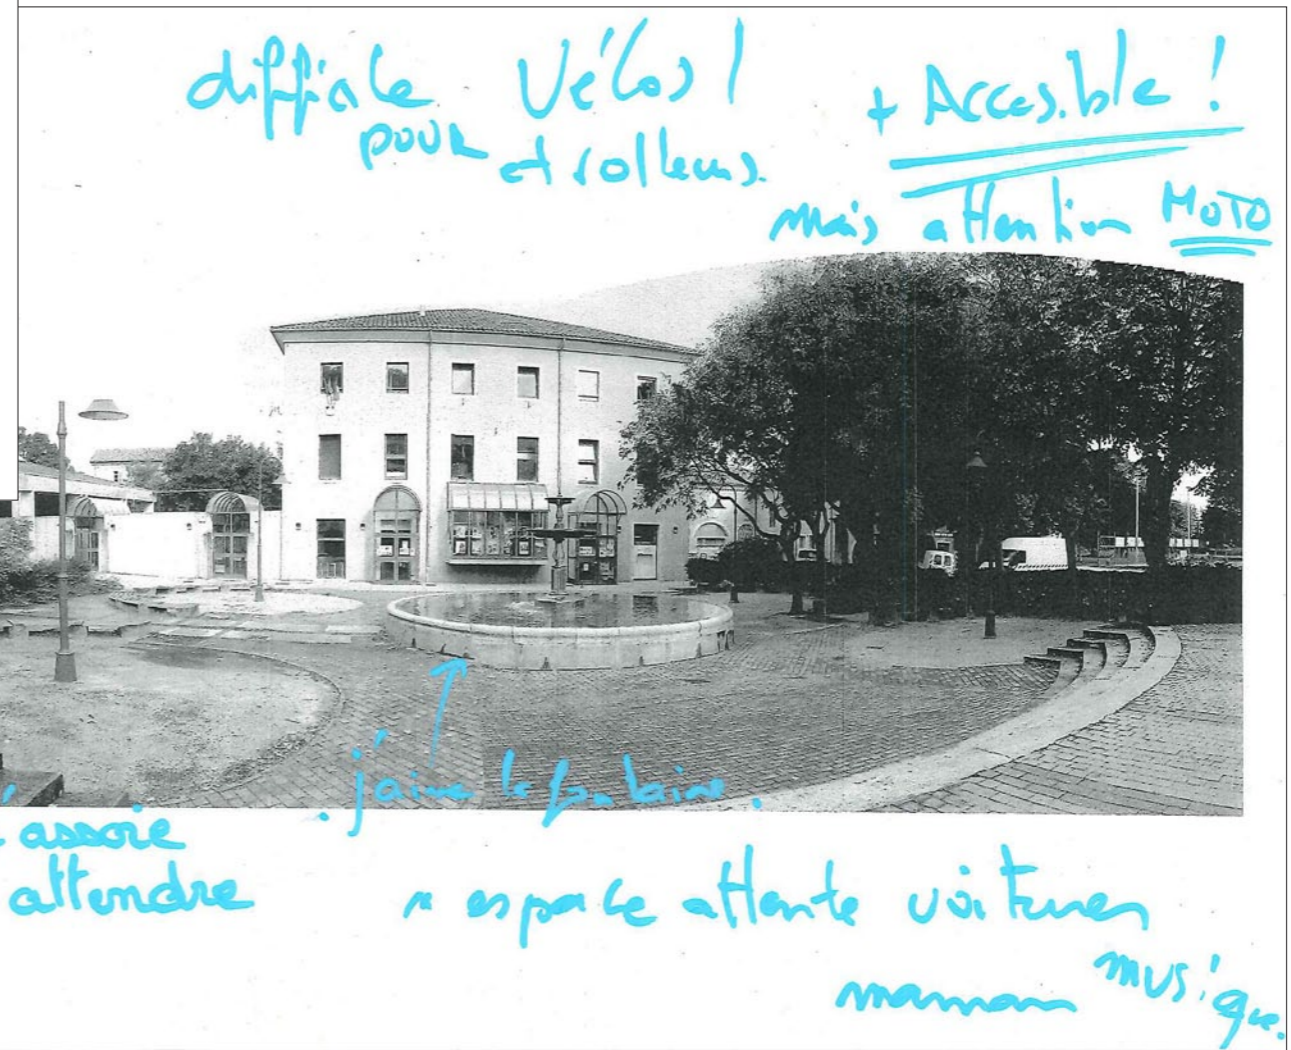 difficile Vélos !
pour et rollers.
+ Accesible !
mais attention MOTO
. j'aime la fontaine.
assoie
attendre
espace attente voitures
maman musique.